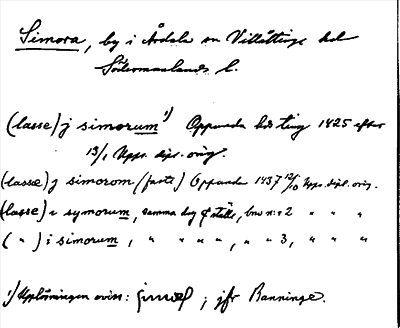 Simora, by i Årdala sn Villåttinge hd
Södermanlands l.
(lasse) j simorum¹⁾ Oppunda hds ting 1425 efter
13/1 Upps. dipl. orig.
(lasse) j simorom (faste) Oppunda 1437 12/10 Upps. dipl. orig.
(lasse) i symorum, samma dag & ställe, brev nr 2 " " "
( " ) i simorum, " " " " , " " 3, " " "
¹⁾ Upplösningen oviss: ; jfr Banninge.